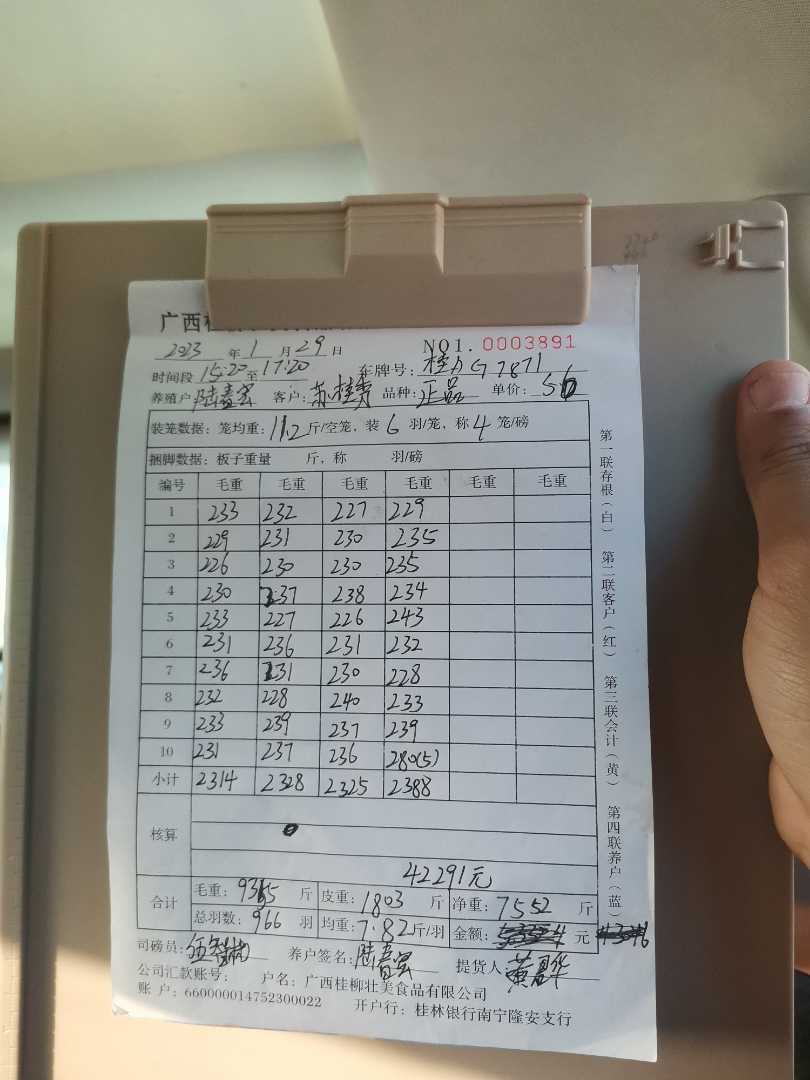 广西桂
NO1. 0003891
2023 年 1 月 29 日
时间段 15:20 至 17:20 车牌号: 桂A G7871
养殖户 陆春宏 客户: 苏桂秀 品种: 正品 单价: 5.6
装笼数据: 笼均重: 11.2 斤/空笼, 装 6 羽/笼, 称 4 笼/磅
捆脚数据: 板子重量 斤, 称 羽/磅
编号 毛重 毛重 毛重 毛重 毛重 毛重
1 233 232 227 229
2 229 231 230 235
3 226 230 230 235
4 230 237 238 234
5 233 227 226 243
6 231 236 231 232
7 236 231 230 228
8 232 228 240 233
9 233 239 237 239
10 231 237 236 280(5)
小计 2314 2328 2325 2388
核算
42291元
合计 毛重: 9355 斤 皮重: 1803 斤 净重: 7552 斤
总羽数: 966 羽 均重: 7.82 斤/羽 金额: 元
司磅员: 养户签名: 陆春宏 提货人:
公司汇款账号: 户名: 广西桂柳壮美食品有限公司
账户: 660000014752300022 开户行: 桂林银行南宁隆安支行
第一联存根(白) 第二联客户(红) 第三联会计(黄) 第四联养户(蓝)